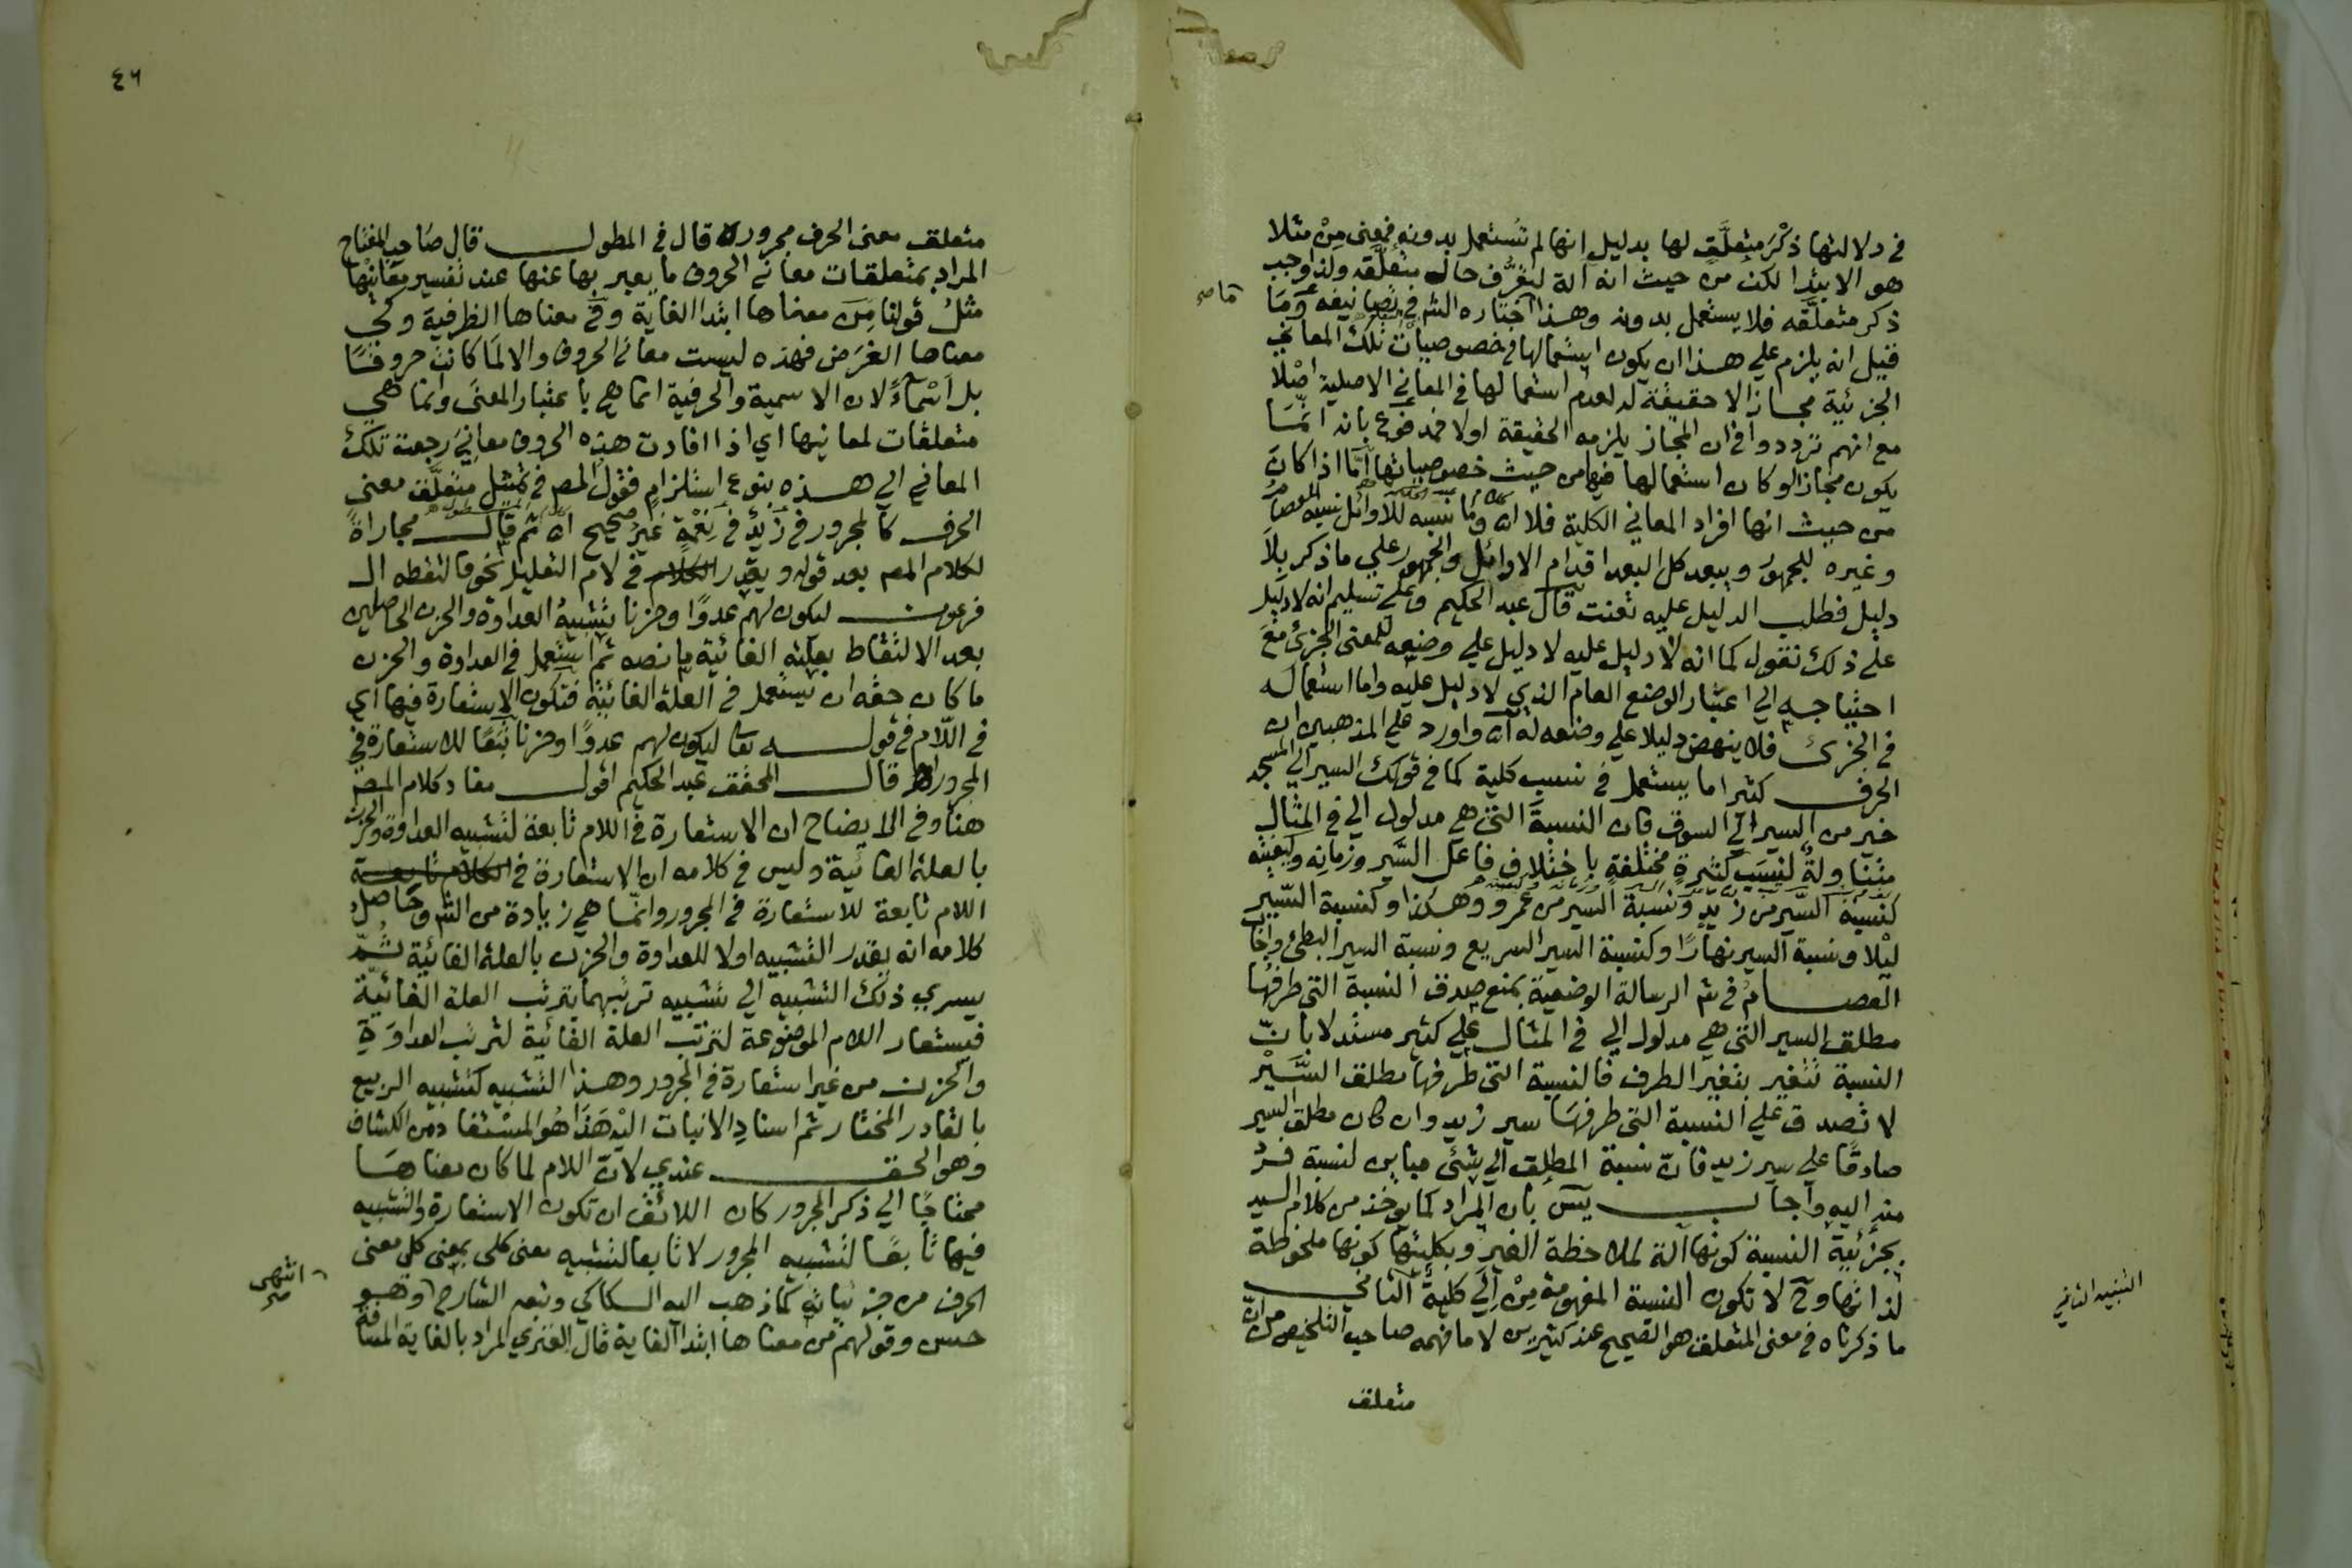 في دلالتها ذكْرَ متعلَّقٍ لها بدليل انها لم تستعمل بدونه فمعنى مِنْ مثلا
هو الابتدا لكن من حيث انه آلة لتعرُّف حال متعلَّقه ولذا وجب
ذكر متعلَّقه فلا يستعمل بدونه وهذا اختاره الش في تصانيفه وَمَا
قيل انه يلزم علي هذا ان يكون استعمالها في خصوصيات تلك المعاني
الجزئية مجازا لا حقيقة له لعدم استعمالها في المعاني الاصلية اصْلا
مع انهم ترددوا في ان المجاز يلزمه الحقيقة اولا فمدفوع بانه انّمَا
يكون مجازا لو كان استعمالها فيها من حيث خصوصياتها أمّا اذا كان
من حيث انها افراد المعاني الكلية فلا اﻫ وما نسبه للاوائل نسبه العصام
وغيره للجمهور ويبعد كل البعد اقدام الاوائل والجمهور علي ما ذكر بلا
دليل فطلب الدليل عليه تعنت قال عبد الحكيم وعلي تسليم انه لا دليل
علي ذلك نقول كما انه لا دليل عليه لا دليل علي وضعه للمعنى الجزئ مع
احتياجه الي اعتبار الوضع العام الذي لا دليل عليه واما استعماله
في الجزئ فلا ينهض دليلا علي وضعه له اﻫ واورد علي المذهبين ان
الحرف كثيرا ما يستعمل في نسب كلية كما في قولك السير الي المسجد
خير من السير الي السوق فان النسبة التي هي مدلول الي في المثال
متناولةٌ لنِسَبٍ كثيرةٍ مختلفةٍ باختلاف فاعل السَّير وزمانِه وكيفيته
كنسبة السَّير من زيدٍ ونسبة السير من عمرو وهكذا وكنسبة السّير
ليْلا ونسبة السير نهارًا وكنسبة السير السريع ونسبة السير البطئ واجَابَ
العصام في ش الرسالة الوضعية بمنع صدق النسبة التي طرفها
مطلق السير التي هي مدلول الي في المثال علي كثير مستدلا بانّ
النسبة تتغير بتغير الطرف فالنسبة التي طرفها مطلق السَّيْر
لا تصدق علي النسبة التي طرفهَا سير زيد وان كان مطلق السير
صادقًا علي سير زيد فانّ نسبة المطلق الي شئ مباين لنسبة فردٍ
منه اليه وأجاب يسٓ بان المراد كما يوخذ من كلام السيد
بجزئيةِ النسبة كونها آلة لملاحظة الغير وبكليتها كونها ملحوظة
لذاتها وح لا تكون النسبة المفهومة مِنْ إلَي كليةً الثاني
ما ذكرناه في معنى المتعلق هو الصحيح عند كثيرين لا ما فهمه صاحب التلخيص من انّ
متعلق
التنبيه الثاني
٤٦
متعلق معنى الحرف مجروره قال في المطول قال صَاحب المفتاح
المراد بمتعلقات معاني الحروف ما يعبر بها عنها عند تفسير معانيها
مثلُ قولنا مِنَ معناها ابتدا الغاية وفي معناها الظرفية وكي
معناها الغرَض فهذه ليست معاني الحروف والا لمَا كانت حروفًا
بل أسْماءً لان الاسمية والحرفية انما هي باعتبار المعنى وانما هي
متعلقات لمعانيها اي اذا افادت هذه الحروف معانِيَ رجعت تلك
المعاني الي هذه بنوع استلزامٍ فقول المص في تمثيل متعلَّق معنى
الحرف كالمجرور في زيدٌ في نِعْمَةٍ غير صحيح اﻫ ثم قال مجاراةً
لكلام المص بعد قوله ويقدر في لام التعليل نحو فالتقطه ال
فرعون ليكون لهم عدوًا وحزنا تشبيهُ العداوة والحزن الحاصلين
بعد الالتقاط بعلته الغائية ما نصه ثم استعمل في العداوة والحزن
ما كان حقه ان يستعمل في العلة الغائية فتكون الاستعارة فيها اي
في اللّام في قوله تعا ليكون لهم عدوًا وحزنا تَبَعًا للاستعارة في
المجرور اﻫ قال المحقق عبد الحكيم اقول مفاد كلام المص
هنا وفي الايضاح ان الاستعارة في اللام تابعة لتشبيه العداوة والحزن
بالعلة الغائية وليس في كلامه ان الاستعارة في
اللام تابعة للاستعارة في المجرور وانّما هي زيادة من الش وحَاصل
كلامه انه يقدر التشبيه اولا للعداوة والحزن بالعلة الغائية ثُمّ
يسري ذلك التشبيه الي تشبيه ترتبهما بترتب العلة الغائيّة
فيستعار اللام الموضوعة لترتب العلة الغائية لترتب العداوَةِ
والحزن من غير استعارة في المجرور وهذا التشبيه كتشبيه الربيع
بالقادر المختار ثم اسنادِ الانبات اليْه هَذَا هُو المسْتفاد من الكشاف
وهو الحق عندي لانّ اللام لما كان معناهَا
محتاجًا الي ذكر المجرور كان اللائق ان تكون الاستعارة والتشبيه
فيها تابعًا لتشبيه المجرور لا تابعا لتشبيه معنى كلي بمعنى كلي معنى
الحرف من جزئياته كما ذهب اليه السكاكي وتبعه الشارح وهو
حسن وقولهم من معناها ابتدا الغاية قال الفنري المراد بالغاية المسافة
انتهى
صح